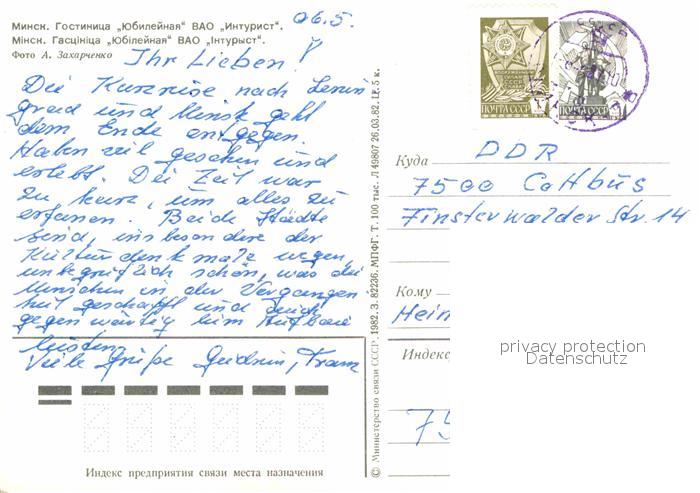 Минск. Гостиница „Юбилейная“ ВАО „Интурист“.
Мінск. Гасцініца „Юбілейная“ ВАО „Інтурыст“.
Фото А. Захарченко
06.5.
Ihr Lieben!
Die Kurzreise nach Lenin
grad und Minsk geht
dem Ende entgegen.
Haben viel gesehen und
erlebt. Die Zeit war
zu kurz, um alles zu
erfassen. Beide Städte
sind, insbesondere der
Kulturdenkmale wegen,
unbegreiflich schön, was die
Menschen in der Vergangen
heit geschafft und
gegenwärtig beim Aufbau
leisten.
Viele Grüße Gudrun,
Индекс предприятия связи места назначения
© Министерство связи СССР. 1982. З. 82236. МПФГ. Т. 100 тыс. Л 49807 26.03.82. Ц. 5 к.
ПОЧТА СССР
ПОЧТА СССР
Куда
DDR
7500 Cottbus
Finsterwalder Str. 14
Кому
Hein
Индекс
75
privacy protection
Datenschutz